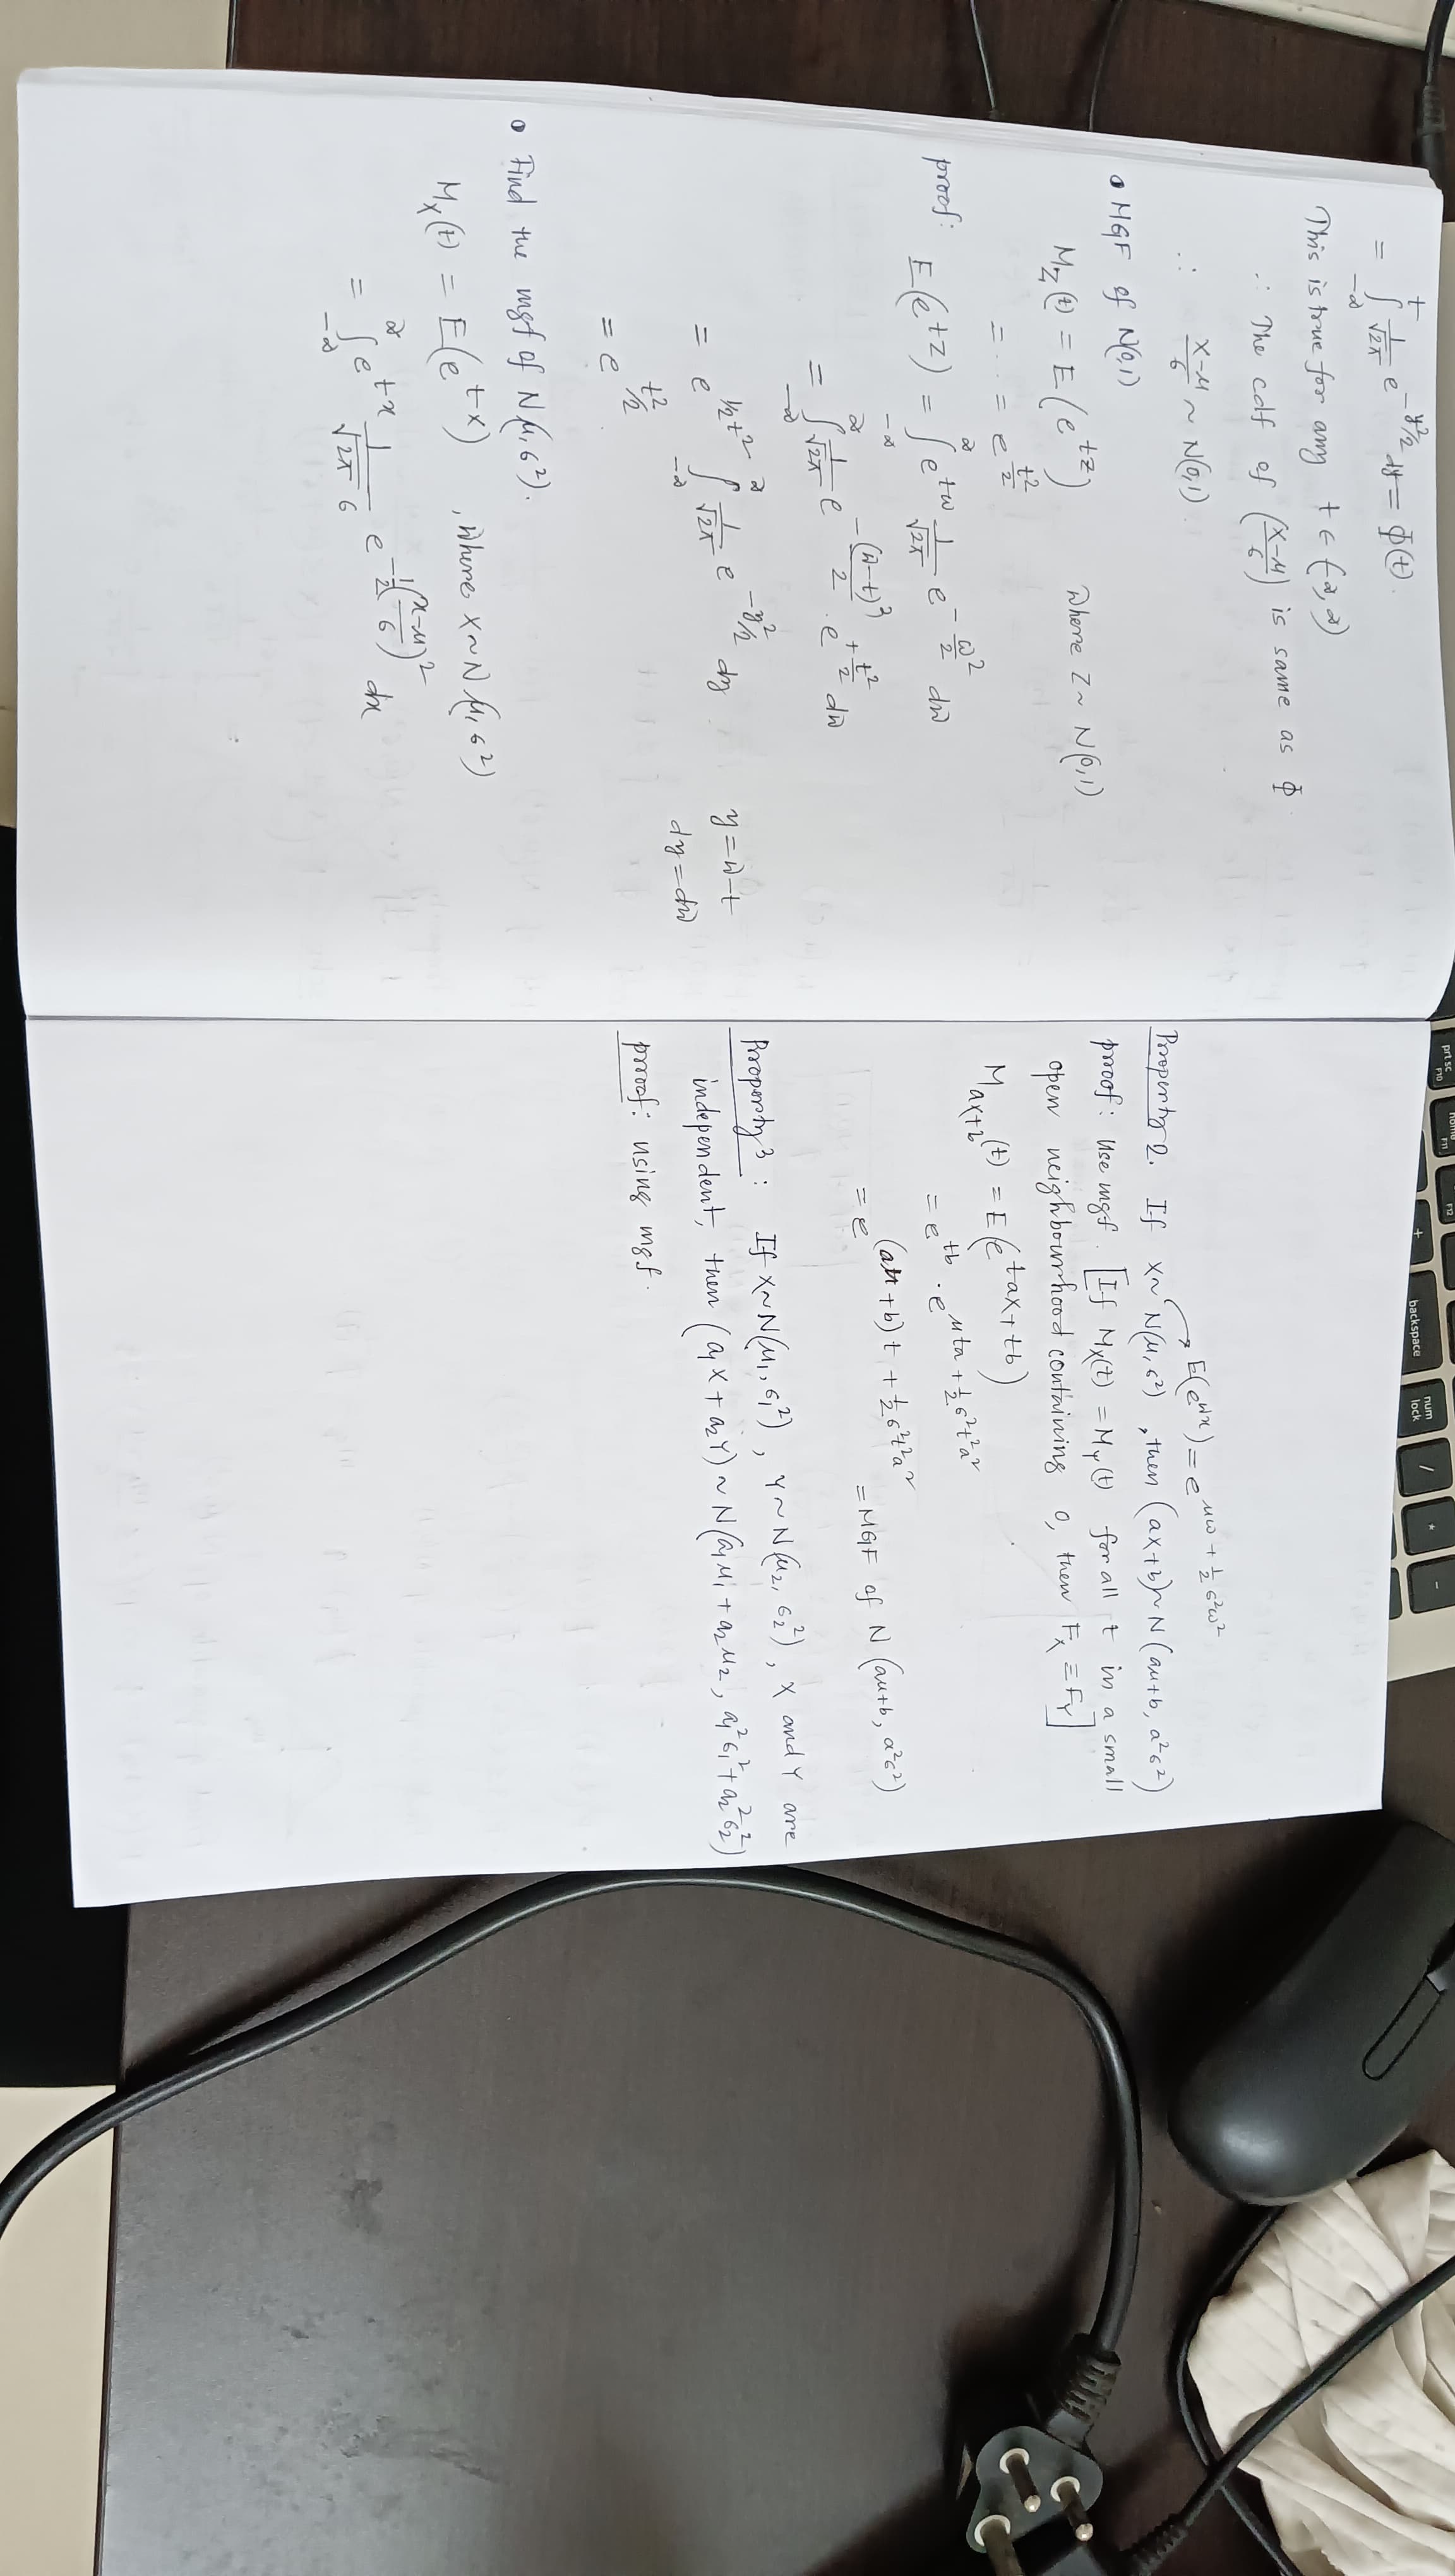 = ∫_{-∞}^{t} 1/√2π e^{-y²/2} dy = Φ(t).
This is true for any t ∈ (-∞, ∞)
∴ The cdf of (X-μ/σ) is same as Φ.
∴ X-μ/σ ~ N(0,1)
• MGF of N(0,1)
M_Z(t) = E(e^{tZ}) where Z ~ N(0,1)
= ... = e^{t²/2}
proof: E(e^{tZ}) = ∫_{-∞}^{∞} e^{tw} 1/√2π e^{-w²/2} dw
= ∫_{-∞}^{∞} 1/√2π e^{-(w-t)²/2} · e^{+t²/2} dw
= e^{1/2 t²} ∫_{-∞}^{∞} 1/√2π e^{-y²/2} dy y = w-t
dy = dw
= e^{t²/2}
• Find the mgf of N(μ, σ²).
M_X(t) = E(e^{tX}) , where X ~ N(μ, σ²)
= ∫_{-∞}^{∞} e^{tx} 1/√2π σ e^{-1/2(x-μ/σ)²} dx
E(e^{wx}) = e^{μw + 1/2 σ²w²}
Property 2. If X ~ N(μ, σ²), then (aX+b) ~ N(aμ+b, a²σ²)
proof: Use mgf. [If M_X(t) = M_Y(t) for all t in a small
open neighbourhood containing 0, then F_X ≡ F_Y]
M_{aX+b}(t) = E(e^{taX+tb})
= e^{tb} · e^{μta + 1/2 σ²t²a²}
= e^{(aμ+b)t + 1/2 σ²t²a²} = MGF of N(aμ+b, a²σ²)
Property 3: If X ~ N(μ₁, σ₁²), Y ~ N(μ₂, σ₂²), X and Y are
independent, then (a₁X + a₂Y) ~ N(a₁μ₁ + a₂μ₂, a₁²σ₁² + a₂²σ₂²)
proof: using mgf.
prt sc
F10
home
F11
F12
+
backspace
num
lock
/
*
-